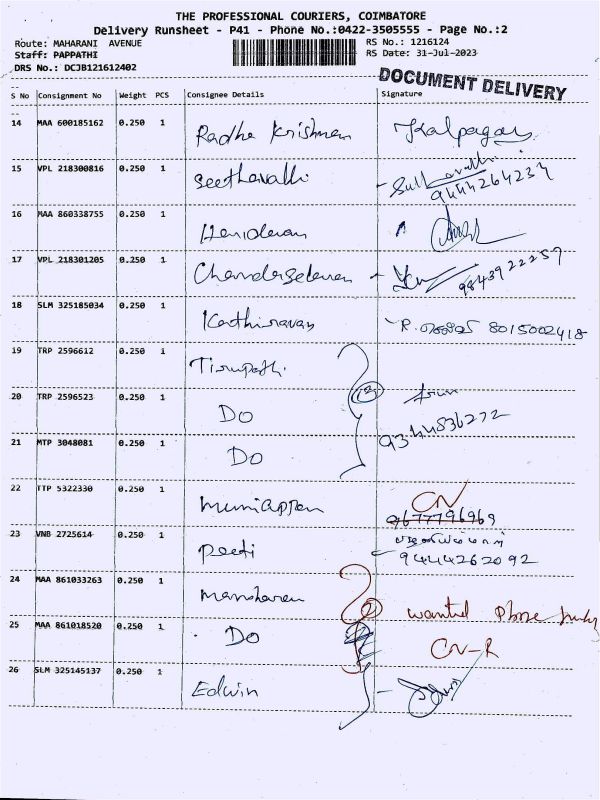 THE PROFESSIONAL COURIERS, COIMBATORE
Delivery Runsheet - P41 - Phone No.:0422-3505555 - Page No.:2
Route: MAHARANI AVENUE
RS No.: 1216124
Staff: PAPPATHI
RS Date: 31-Jul-2023
DRS No.: DCJB121612402
DOCUMENT DELIVERY
S No Consignment No Weight PCS Consignee Details Signature
14 MAA 600185162 0.250 1 Radha Krishnan Kalpagam
15 VPL 218300816 0.250 1 Seethavalli
9444264234
16 MAA 860338755 0.250 1
17 VPL 218301205 0.250 1 9843922257
18 SLM 325185034 0.250 1 Kathiravan R. 8015002418
19 TRP 2596612 0.250 1 Tirupathi
20 TRP 2596523 0.250 1 Do 13 Arun
9344836272
21 MTP 3048081 0.250 1 Do
22 TTP 5322330 0.250 1 Muniappan CN
9677796969
23 VNB 2725614 0.250 1
9444262092
24 MAA 861033263 0.250 1 Manoharan
2 wanted Phone
25 MAA 861018520 0.250 1 Do CN-R
26 SLM 325145137 0.250 1 Edwin